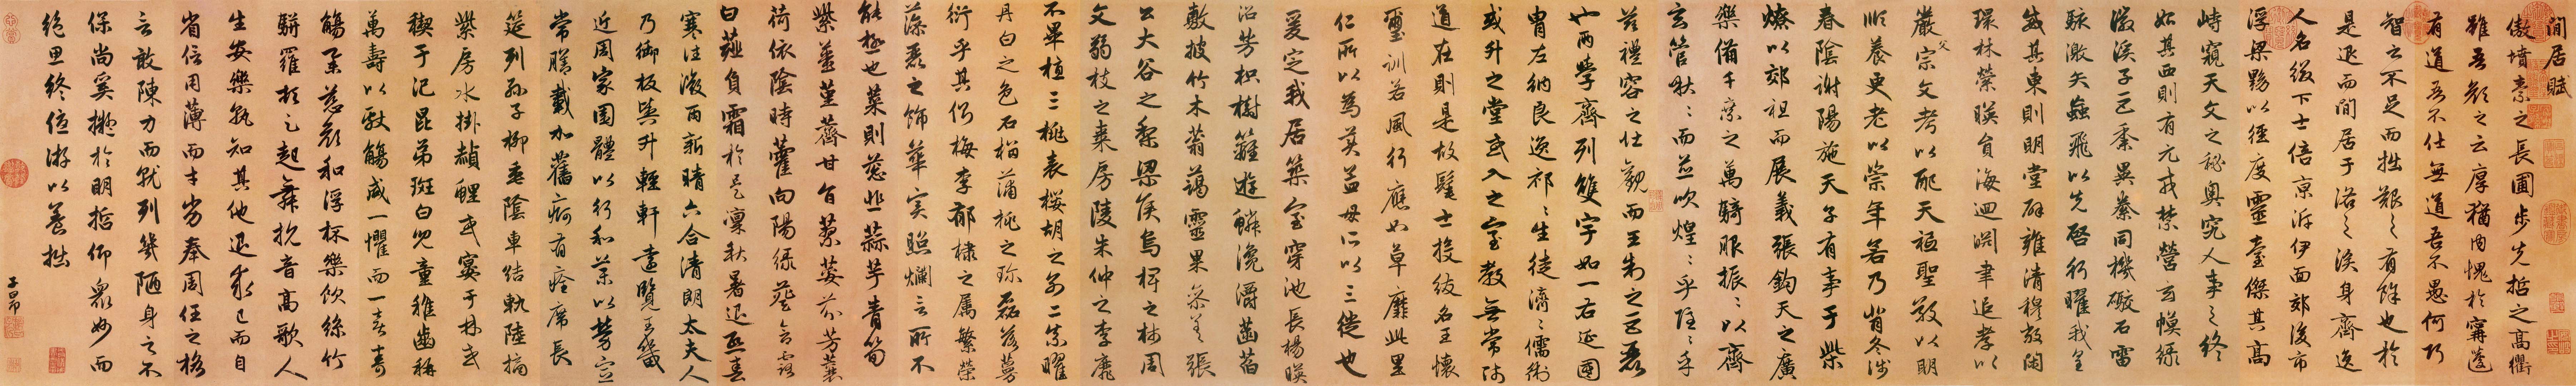 閒居賦
傲墳素之長圃步先哲之高衢
雖吾顏之云厚猶內愧於寧蘧
有道吾不仕無道吾不愚何巧
智之不足而拙艱之有餘也於
是退而閒居于洛之涘身齊逸
人名綴下士倍京泝伊面郊後市
浮梁黝以徑度靈臺傑其高
峙窺天文之秘奧究人事之終
始其西則有元戎禁營玄幙綠
徽溪子巨黍異絭同機礮石雷
駭激矢蝱飛以先啓行曜我皇
威其東則明堂辟雍清穆敞閑
環林縈暎員海迴淵聿追孝以
嚴父宗文考以配天秪聖敬以明
順養更老以崇年若乃背冬涉
春陰謝陽施天子有事于柴
燎以郊祖而展義張鈞天之廣
樂備千乘之萬騎服振〻以齊
玄管啾〻而並吹煌〻乎隱〻乎
茲禮容之壯觀而王制之巨麗
也兩學齊列雙宇如一右延國
胄左納良逸祁〻生徒濟〻儒術
或升之堂或入之室教無常師
道在則是故髦士投紱名王懷
璽訓若風行應如草靡此里
仁所以為美孟母所以三徙也
爰定我居築室穿池長楊暎
沼芳枳樹籬遊鱗瀺灂菡萏
敷披竹木蓊藹靈果參差張
公大谷之梨梁侯烏椑之柿周
文弱枝之棗房陵朱仲之李靡
不畢植三桃表櫻胡之別二柰曜
丹白之色石榴蒲桃之珍磊落蔓
衍乎其側梅李郁棣之屬繁榮
藻麗之飾華實照爛言所不
能極也菜則蔥韭蒜芋青筍
紫薑堇薺甘旨蓼荽芬芳蘘
荷依陰時藿向陽綠葵含露
白薤負霜於是凜秋暑退熙春
寒往微雨新晴六合清朗太夫人
乃御板輿升輕軒遠覽王畿
近周家園體以行和藥以勞宣
常膳載加舊痾有痊席長
筵列孫子柳垂陰車結軌陸摘
紫房水掛赬鯉或宴于林或
禊于汜昆弟斑白兒童稚齒稱
萬壽以獻觴咸一懼而一喜壽
觴舉慈顏和浮杯樂飲絲竹
駢羅頓足起舞抗音高歌人
生安樂孰知其他退求己而自
省信用薄而才劣奉周任之格
言敢陳力而就列幾陋身之不
保尚奚擬於明哲仰眾妙而
絕思終優游以養拙
子昂